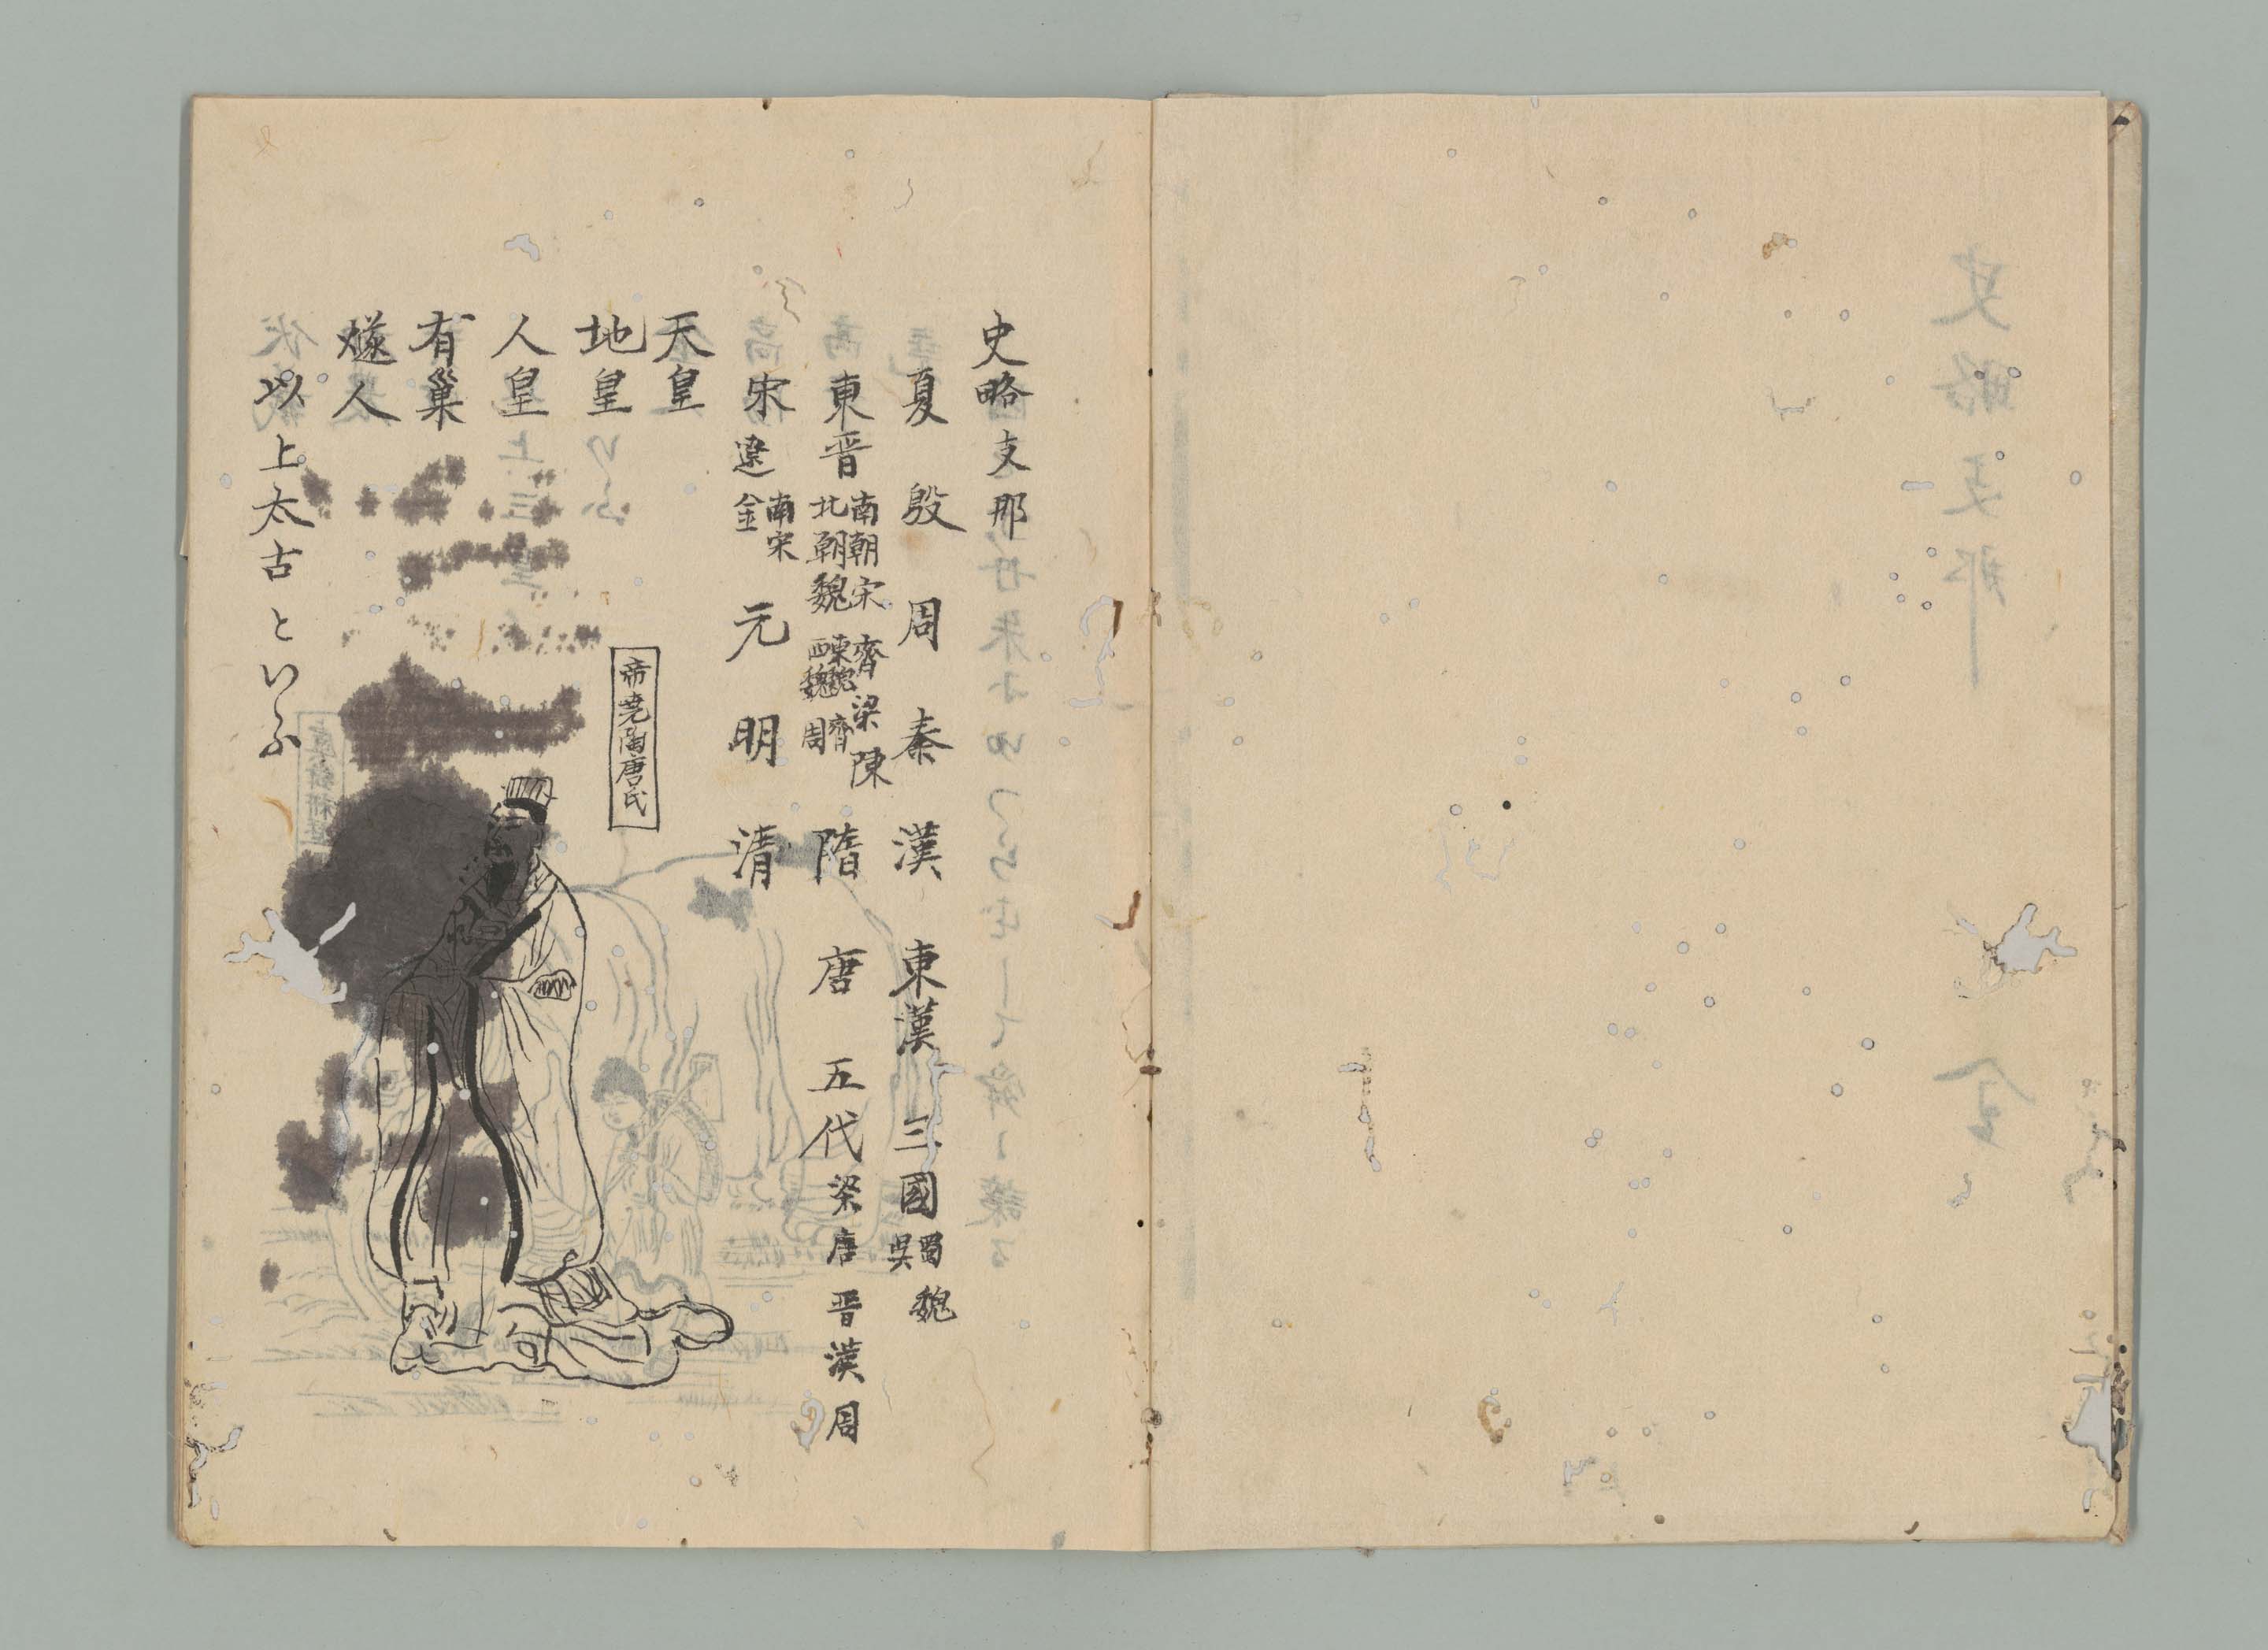 史略 支那
夏 殷 周 秦 漢 東漢 三國 蜀 魏 吳
東晋 南朝 宋 齊 梁 陳 北朝 魏 東魏 西魏 齊 周 隋 唐 五代 梁 唐 晋 漢 周
宋 遼 南宋 金 元 明 清
天皇
地皇
人皇
有巢
燧人
以上太古といふ
帝堯陶唐氏